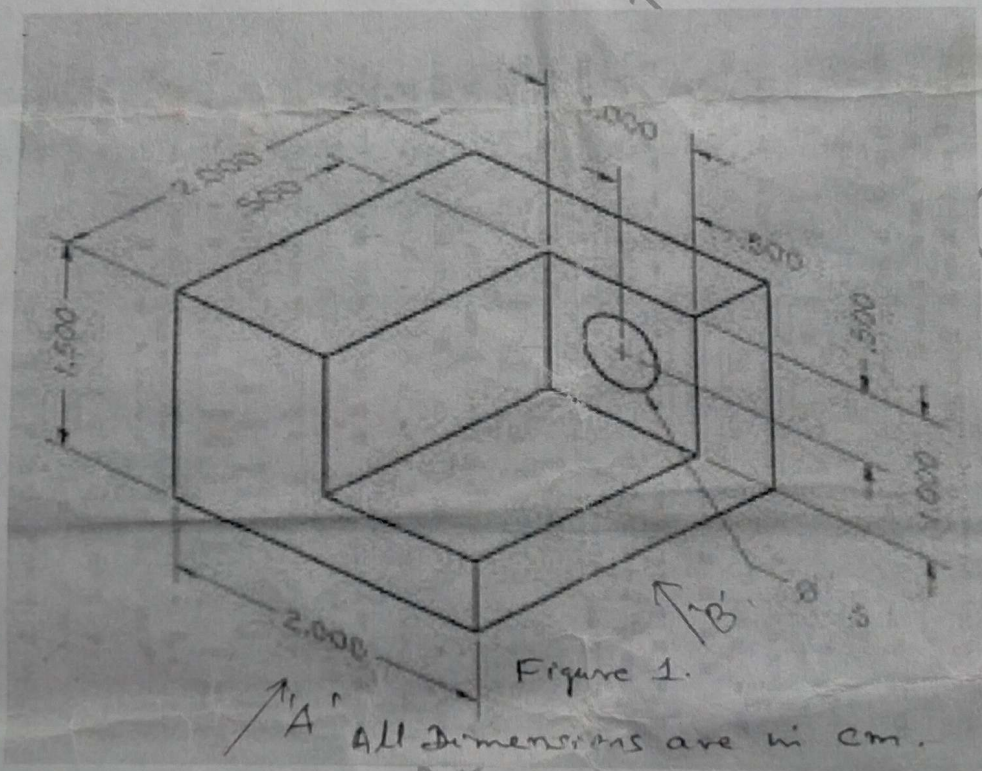 2.000
.500
.500
1.500
.500
1.000
2.000
"B"
Figure 1.
"A"
All Dimensions are in cm.